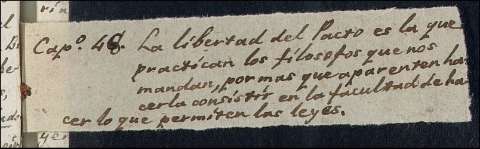 Capº. 48. La libertad del Pacto es la que
practican los filosofos que nos
mandan, por mas que aparenten ha-
cerla consistir en la facultad de ha-
cer lo que permiten las leyes.